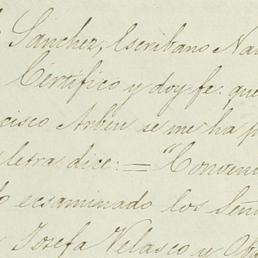 Sanchez, Escribano Na
Certifico y doy fe: que
cisco Arbeu se me ha p
letra dice: = "Conveni
ecsaminado los Señ
Josefa Velasco y